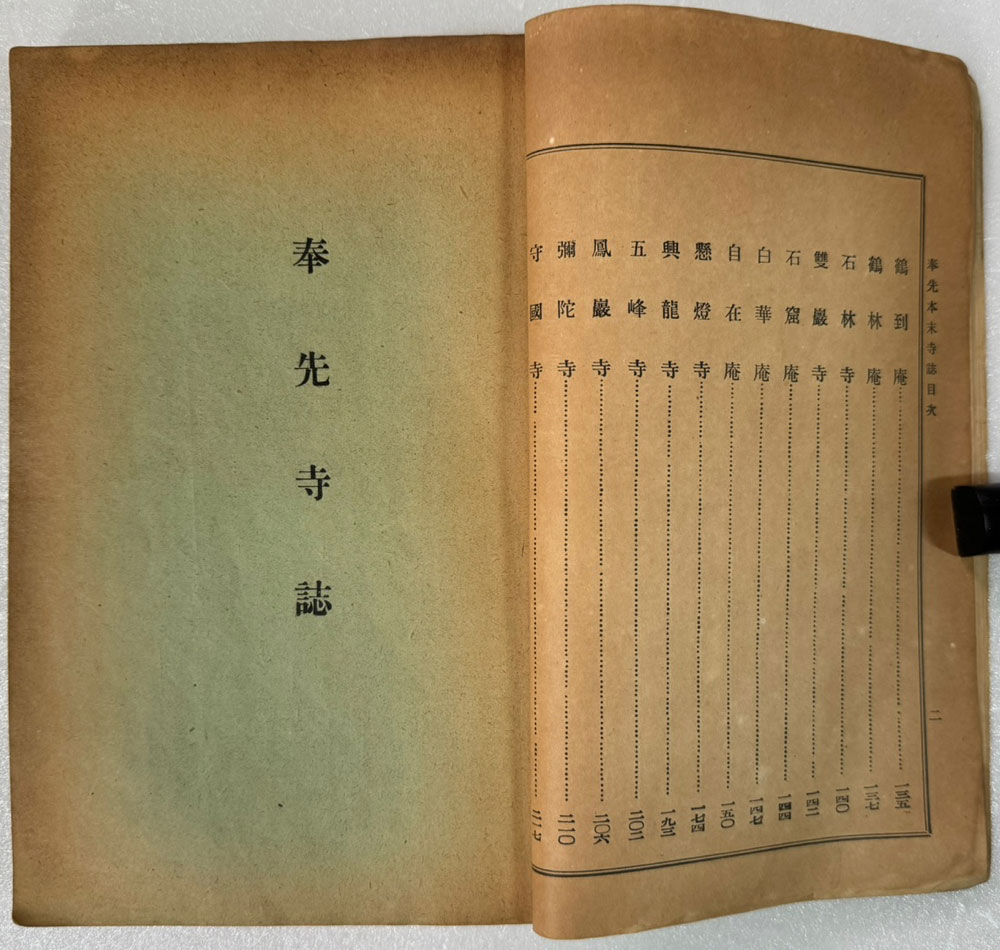 奉先本末寺誌目次 二
鶴到庵……一三五
鶴林庵……一三七
石林寺……一四〇
雙巖寺……一四二
石窟庵……一四四
白華庵……一四七
自在庵……一五〇
懸燈寺……一七四
興龍寺……一九三
五峰寺……二〇二
鳳巖寺……二〇六
彌陀寺……二一〇
守國寺……二一七
奉先寺誌